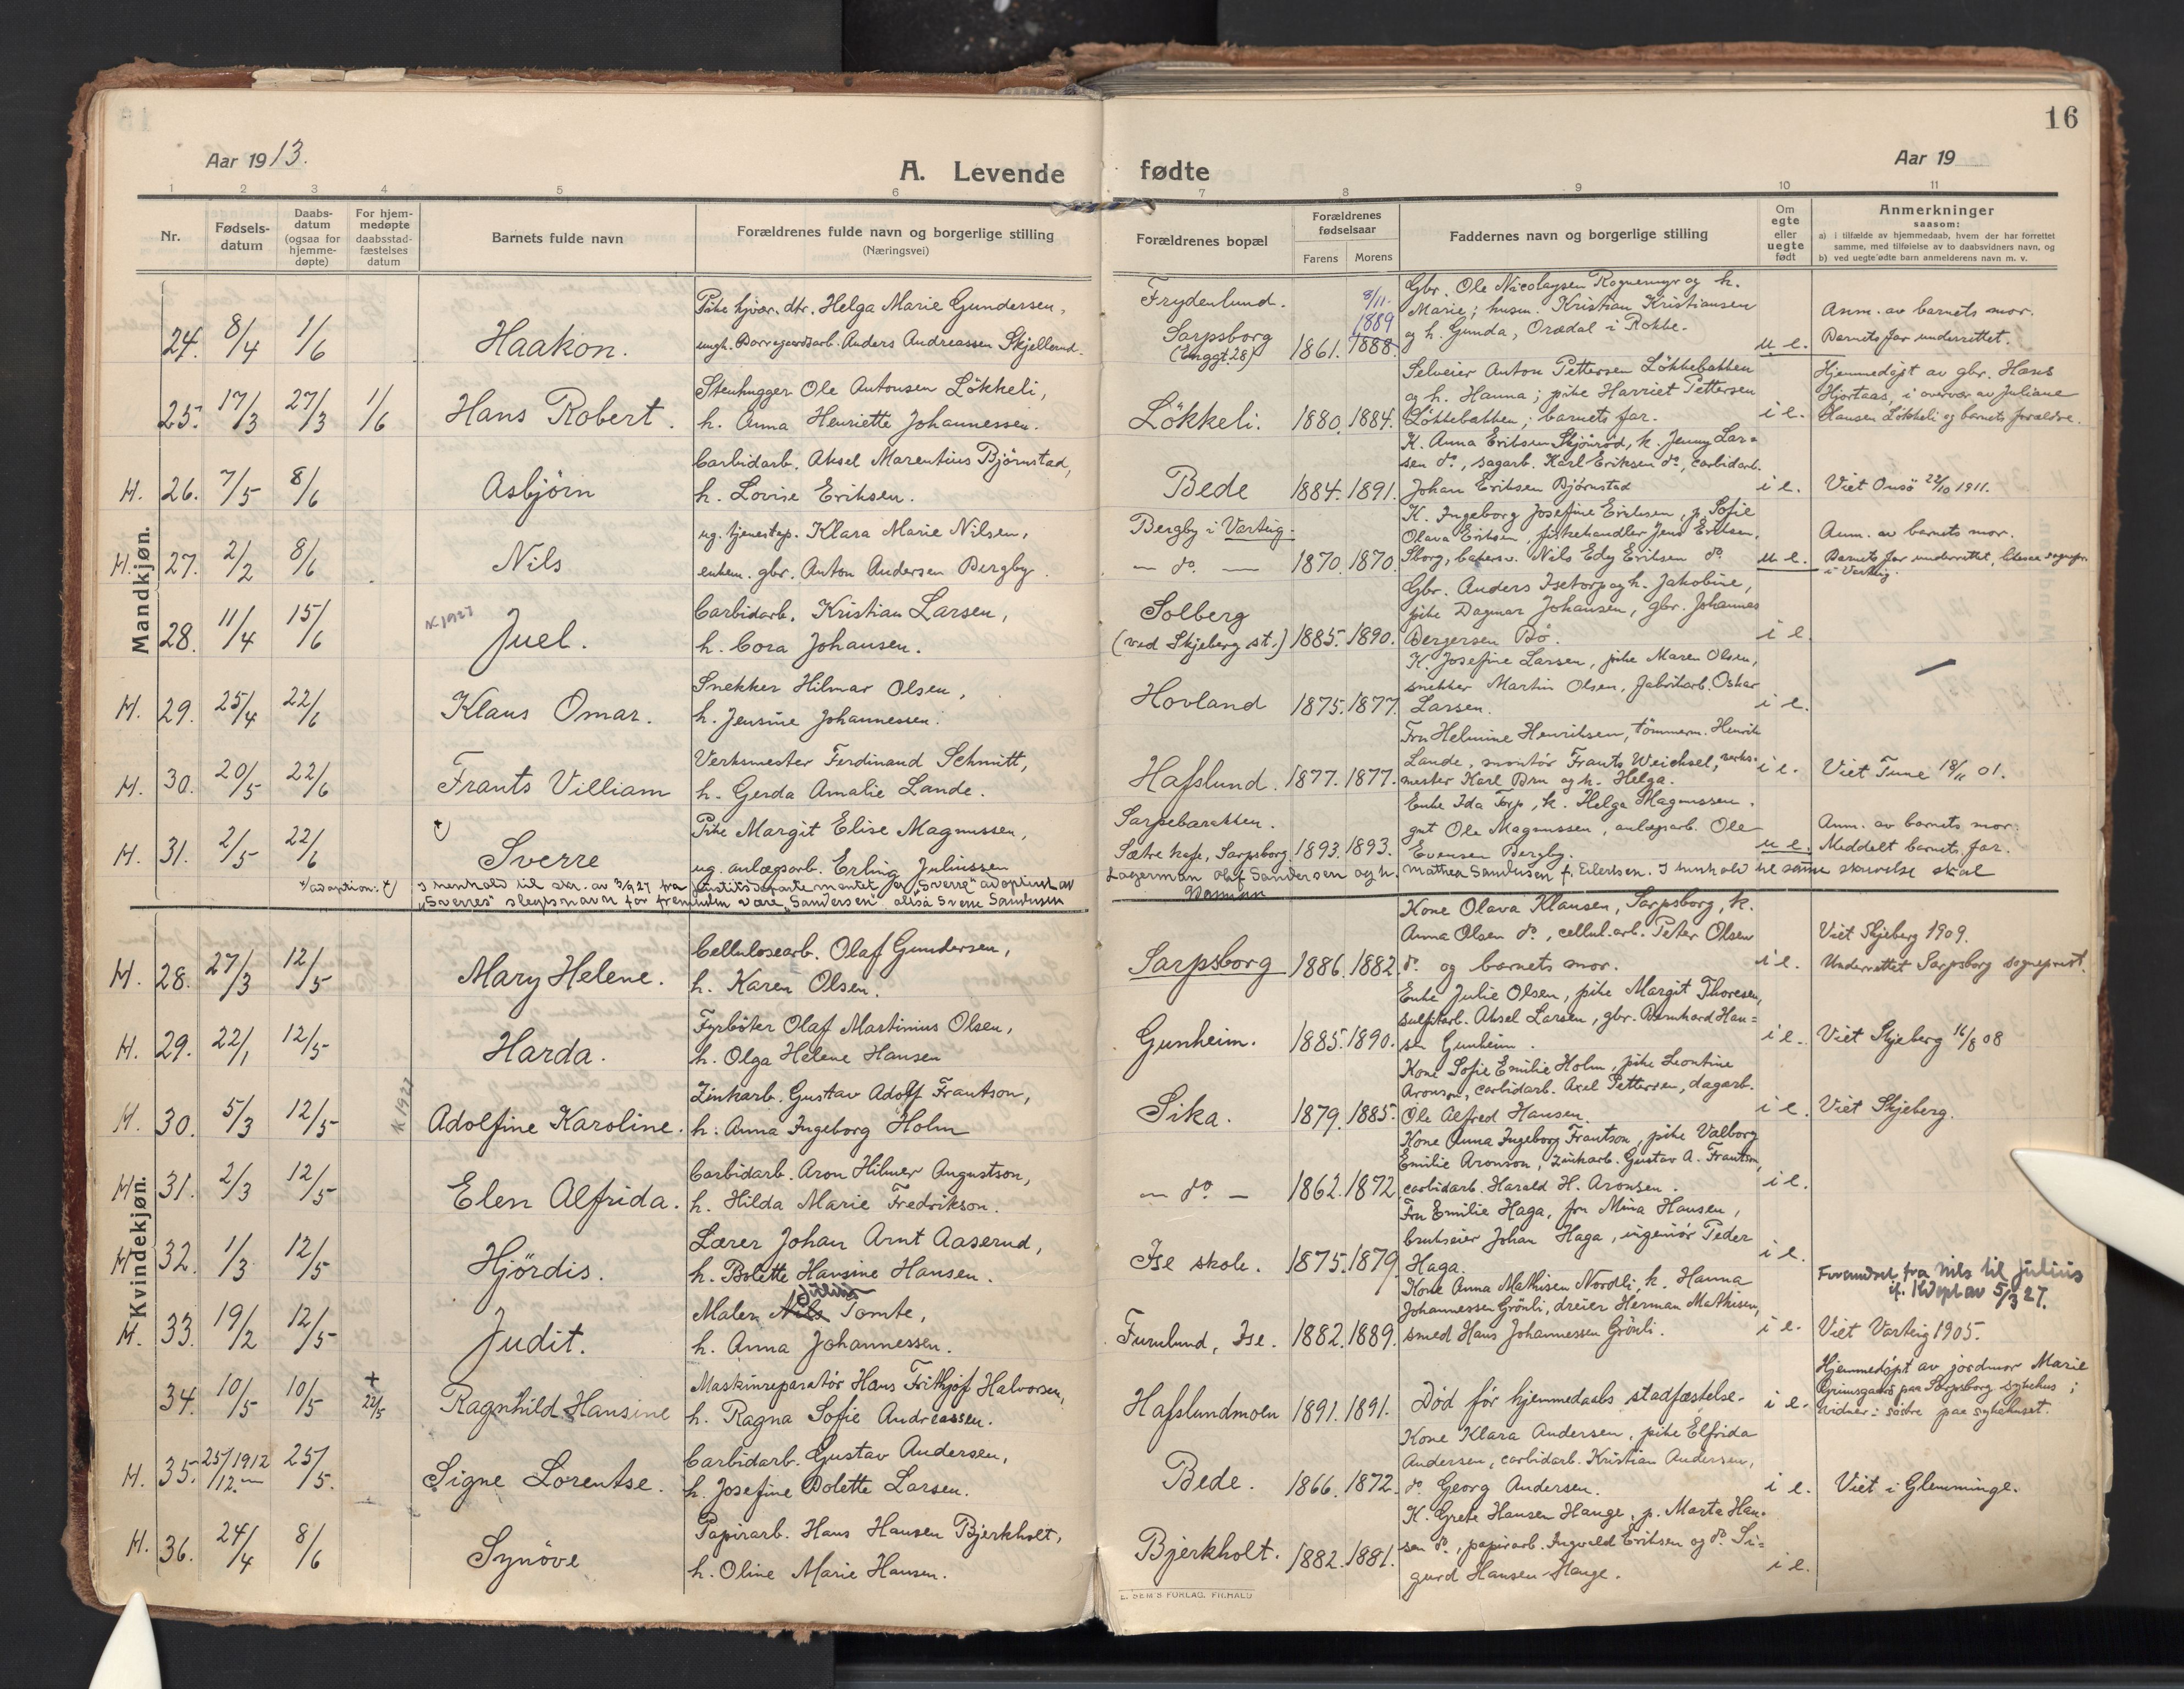 16
Aar 1913.
A. Levende fødte
Aar 19
1 2 3 4 5 6 7 8 9 10 11
Nr.
Fødsels-
datum
Daabs-
datum
(ogsaa for
hjemme-
døpte)
For hjem-
medøpte
daabsstad-
fæstelses
datum
Barnets fulde navn
Forældrenes fulde navn og borgerlige stilling
(Næringsvei)
Forældrenes bopæl
Forældrenes
fødselsaar
Farens Morens
Faddernes navn og borgerlige stilling
Om
egte
eller
uegte
født
Anmerkninger
saasom:
a) i tilfælde av hjemmedaab, hvem der har forrettet
samme, med tilføielse av to daabsvidners navn, og
b) ved uegte fødte barn anmelderens navn m. v.
Mandkjøn.
24. 8/4 1/6
Haakon.
Pike hjvær. dtr. Helga Marie Gundersen,
ungk. Borregaardsarb. Anders Andreassen Skjellerud.
Frydenlund.
Sarpsborg
(Enggt. 28)
1861. 1888.
8/11.
1889
Gbr. Ole Nicolaysen Rognemyr og h.
Marie; husm. Kristian Kristiansen
og h. Gunda, Ørsdal i Rokke.
u e.
Anm. av barnets mor.
Barnets far underrettet.
25. 17/3 27/3 1/6
Hans Robert.
Stenhugger Ole Antonsen Lökkeli,
h. Anna Henriette Johannessen.
Lökkeli.
1880. 1884.
Selveier Anton Pettersen Lökkebakken
og h. Hanna; pike Harriet Pettersen
Lökkebakken; barnets far.
i e.
Hjemmedøpt av gbr. Hans
Hjortaas, i overvær av Juliane
Hansen Lökkeli og barnets forældre.
H. 26. 7/5 8/6
Asbjörn
Carbidarb. Aksel Marentius Björnstad,
h. Lovise Eriksen.
Bede
1884. 1891.
K. Anna Eriksen Skjönröd, k. Jenny Lar=
sen do., sagarb. Karl Eriksen do., carbidarb.
Johan Eriksen Björnstad
i e.
Viet Onsö 22/10 1911.
H. 27. 2/2 8/6
Nils
ug. tjenestep. Klara Marie Nilsen,
enkem. gbr. Anton Andersen Bergby.
Bergby i Varteig.
— do. —
1870. 1870.
K. Ingeborg Josefine Eriksen, p. Sofie
Olava Eriksen, fiskehandler Jens Eriksen,
Sborg, bakersv. Nils Edy Eriksen do.
u e.
Anm. av barnets mor.
Barnets far underrettet, likesaa sognepr.
i Varteig.
28. 11/4 15/6
K 1927
Juel.
Carbidarb. Kristian Larsen,
h. Cora Johansen.
Solberg
(ved Skjeberg st.)
1885. 1890.
Gbr. Anders Isetorp og h. Jakobine,
pike Dagmar Johansen, gbr. Johannes
Bergersen Bö.
i e.
H. 29. 25/4 22/6
Klaus Omar.
Snekker Hilmar Olsen,
h. Jensine Johannessen.
Hovland
1875. 1877.
K. Josefine Larsen, pike Maren Olsen,
snekker Martin Olsen, fabrikarb. Oskar
Larsen.
i e.
H. 30. 20/5 22/6
Frants Villiam
Verksmester Ferdinand Schmitt,
h. Gerda Amalie Lande.
Hafslund.
1877. 1877.
Fru Helmine Henriksen, tömmerm. Henrik
Lande, montör Frants Weichsel, verks-
mester Karl Bru og h. Helga.
i e.
Viet Tune 18/11 01.
H. 31. 2/5 22/6
Sverre
Pike Margit Elise Magnussen,
ug. anlægsarb. Erling Juliussen
Sarpebarakken.
Sætre kafe, Sarpsborg.
1893. 1893.
Enke Ida Torp, k. Helga Magnussen.
gmt Ole Magnussen, anlægsarb. Ole
Evensen Bergby.
u e.
Anm. av barnets mor.
Meddelt barnets far.
adoption: I henhold til skr. av 3/9 27 fra justitsdepartementet er „Sverre“ adoptert av Lagermann Olaf Sandersen og h. Mathea Sandersen f. Eilertsen. I henhold til samme skrivelse skal
„Sverres“ slegtsnavn for fremtiden være „Sandersen“ altsaa Sverre Sandersen
Kvindekjøn.
H. 28. 27/3 12/5
Mary Helene.
Cellulosearb. Olaf Gundersen,
h. Karen Olsen.
Sarpsborg
1886. 1882.
Kone Olava Klausen, Sarpsborg, k.
Anna Olsen do., cellul.arb. Peter Olsen
do. og barnets mor.
i e.
Viet Skjeberg 1909.
Underrettet Sarpsborg sogneprest.
H. 29. 22/1 12/5
Harda.
Fyrböter Olaf Martinius Olsen,
h. Olga Helene Hansen
Gunheim.
1885. 1890.
Enke Julie Olsen, pike Margit Thoresen,
sulfitarb. Aksel Larsen, gbr. Bernhard Han=
sen Gunheim.
i e.
Viet Skjeberg 16/8 08
H. 30. 5/3 12/5
K 1927
Adolfine Karoline.
Zinkarb. Gustav Adolf Frantson,
h. Anna Ingeborg Holm
Sika.
1879. 1885.
Kone Sofie Emilie Holm, pike Leontine
Aronson, carbidarb. Axel Petterson, dagarb.
Ole Alfred Hansen.
i e.
Viet Skjeberg.
H. 31. 2/3 12/5
Elen Alfrida.
Carbidarb. Aron Hilmer Augustson,
h. Hilda Marie Fredrikson.
— do. —
1862. 1872
Kone Anna Ingeborg Frantson, pike Valborg
Emilie Aronson, Zinkarb. Gustav A. Frantson,
carbidarb. Harald H. Aronsen.
i e.
H. 32. 1/3 12/5
Hjördis.
Lærer Johan Arnt Aaserud,
h. Bolette Hansine Hansen.
Ise skole.
1875. 1879
Fru Emilie Haga, fru Mina Hansen,
brukseier Johan Haga, ingeniör Peder
Haga.
i e.
H. 33. 19/2 12/5
Judit.
Julius
Maler Nils Tomte,
h. Anna Johannessen.
Furulund, Ise.
1882. 1889.
Kone Anna Mathisen Nordli, k. Hanna
Johannessen Grönli, dreier Herman Mathisen,
smed Hans Johannessen Grönli.
i e.
Forandret fra Nils til Julius
if. K.dept av 5/3 27.
Viet Varteig 1905.
34. 10/5 10/5 + 22/5
Ragnhild Hansine
Maskinreparatör Hans Frithjof Halvorsen,
h. Ragna Sofie Andreassen.
Hafslundmoen
1891. 1891.
Død før hjemmedaabs stadfæstelse.
i e.
Hjemmedöpt av jordmor Marie
Grimsgaard paa Sarpsborg sykehus;
vidner: söstre paa sykehuset.
H. 35. 25/12 1912 25/5.
Signe Lorentse.
Carbidarb. Gustav Andersen,
h. Josefine Dolette Larsen.
Bede.
1866. 1872.
Kone Klara Andersen, pike Elfrida
Andersen, carbidarb. Kristian Andersen,
do. Georg Andersen.
i e.
Viet i Glemminge.
H. 36. 24/4 8/6
Synöve
Papirarb. Hans Hansen Bjerkholt,
h. Oline Marie Hansen.
Bjerkholt.
1882. 1881.
K. Grete Hansen Hauge, p. Marta Han-
sen do., papirarb. Ingvald Eriksen og do. Si=
gurd Hansen Hauge.
i e.
E. SEM'S FORLAG, FR.HALD